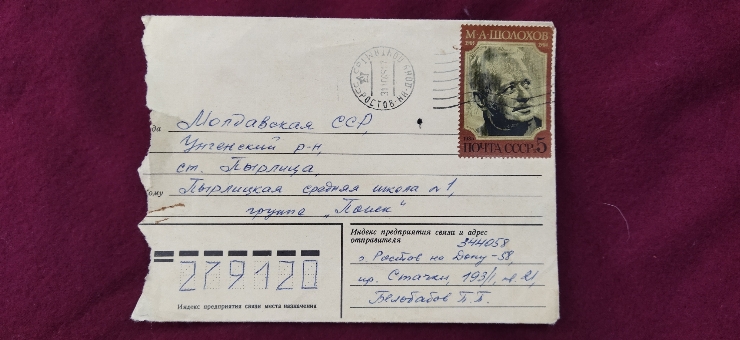 М·А·ШОЛОХОВ
ПОЧТА СССР 5
РОСТОВ-НН
Молдавская ССР,
Унгенский р-н
ст. Пырлица,
Пырлицкая средняя школа №1,
группа „Поиск“
Куда
Кому
Индекс предприятия связи и адрес
отправителя 344058
г. Ростов на Дону-58,
пр. Стачки, 193/1,
Белобабов П.П.
279120
Индекс предприятия связи места назначения